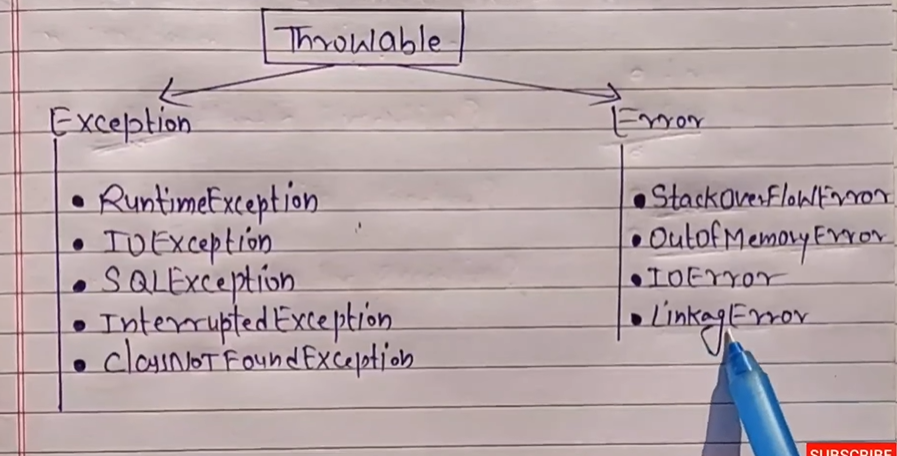 Throwable
Exception
• RuntimeException
• IOException
• SQLException
• InterruptedException
• ClassNotFoundException
Error
• StackOverFlowError
• OutOfMemoryError
• IOError
• LinkagError
SUBSCRIBE